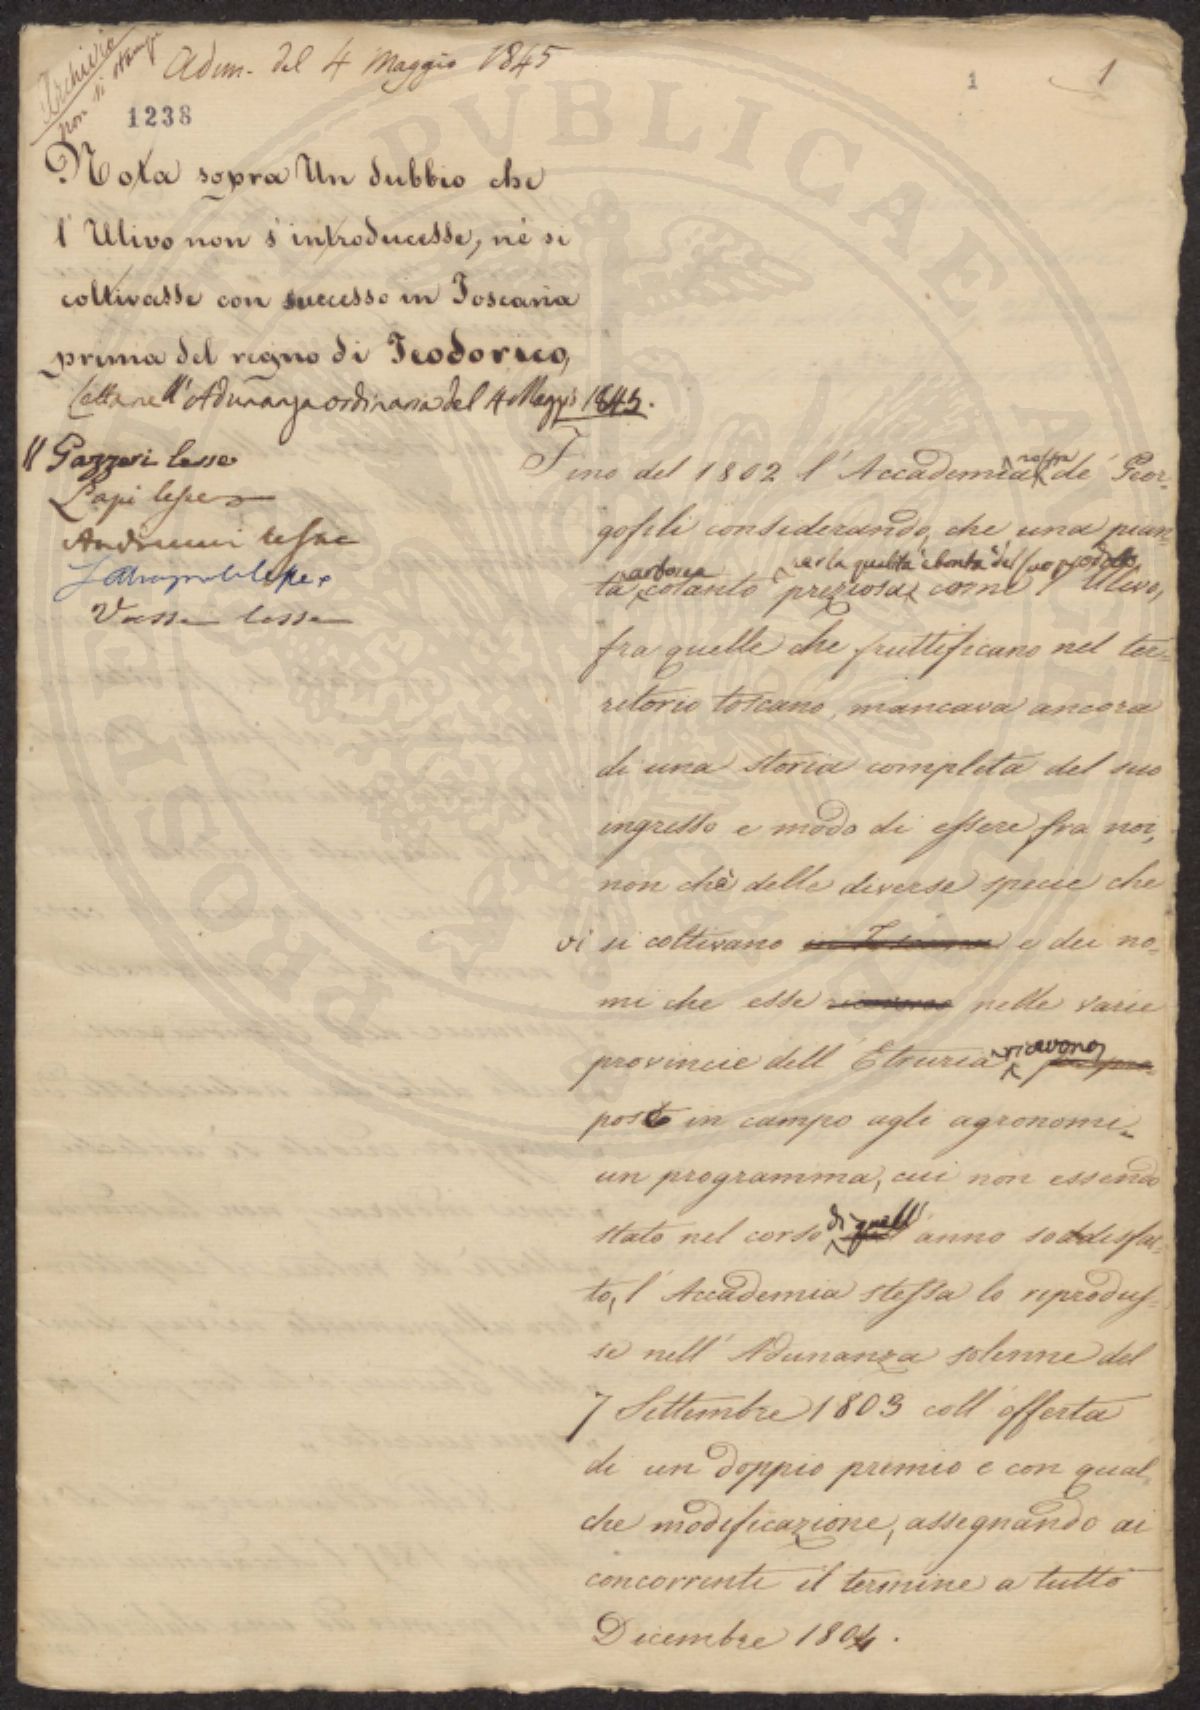 Archivio
non si stampi
Adun. del 4 Maggio 1845
1
1
1238
Nota sopra Un dubbio che
l'Ulivo non s'introducesse, nè si
coltivasse con successo in Toscana
prima del regno di Teodorico,
Letta nell'Adunanza ordinaria del 4 Maggio 1845.
Gazzeri lesse
Papi lesse
lesse
lesse
lesse
Fino del 1802 l'Accademia nostra de' Geor-
gofili considerando, che una pian-
arborea per la qualità e bontà del suo prodotto
ta cotanto preziosa, come l'Ulivo,
fra quelle che fruttificano nel ter-
ritorio toscano, mancava ancora
di una storia completa del suo
ingresso e modo di essere fra noi,
non chè delle diverse specie che
vi si coltivano in Toscana e dei no-
mi che esse ricevono nelle varie
provincie dell'Etruria ricevono
poste in campo agli agronomi
un programma, cui non essendo
stato nel corso di quell'anno soddisfat-
to, l'Accademia stessa lo riprodus-
se nell'Adunanza solenne del
7 Settembre 1803 coll'offerta
di un doppio premio e con qual-
che modificazione, assegnando ai
concorrenti il termine a tutto
Dicembre 1804.